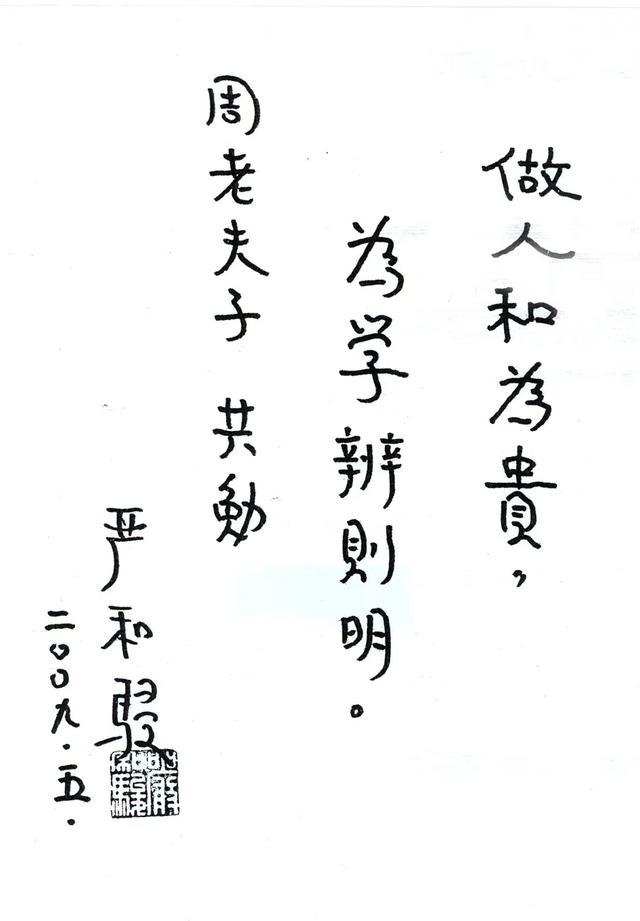 做人和為貴，
為学辨則明。
周老夫子 共勉
严和
二〇〇九.五.